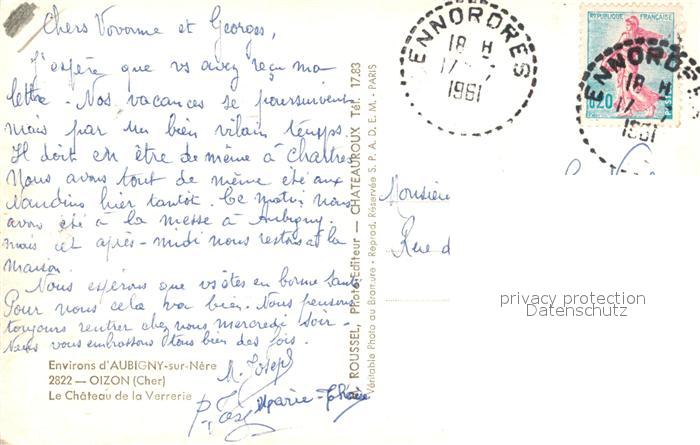 Chers Yvonne et Georges,
J'espère que vs avez reçu ma
lettre. Nos vacances se poursuivent
mais par un bien vilain temps.
Il doit en être de même à Chartres
Nous avons tout de même été aux
Naudins hier tantôt. Ce matin, nous
avons été à la messe à Aubigny.
mais cet après-midi nous restons à la
maison.
Nous espérons que vs êtes en bonne santé
Pour nous cela va bien. Nous pensons
toujours rentrer chez nous mercredi soir.
Nous vous embrassons tous bien des fois.
M. Joseph
Marie-Thérèse
Environs d'AUBIGNY-sur-Nère
2822 — OIZON (Cher)
Le Château de la Verrerie
ROUSSEL, Photo-Editeur — CHATEAUROUX Tél. 17.83
Véritable Photo au Bromure - Reprod. Réservée S. P. A. D. E. M. - PARIS
ENNORDRES
18 H
17 - 7
1961
REPUBLIQUE FRANÇAISE
0,20
POSTES
ENNORDRES
18 H
17
1961
Monsieur
Rue d
privacy protection
Datenschutz